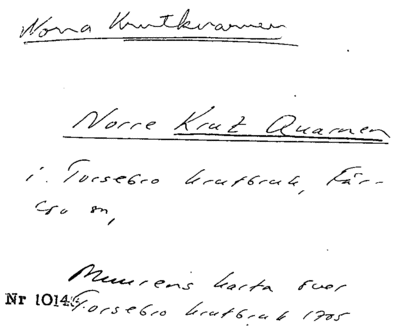 Norra Krutkvarnen
Norre Krut Quarnen
i Torsebro krutbruk, Fär-
sn,
karta över
Nr 1014
Torsebro krutbruk 1705